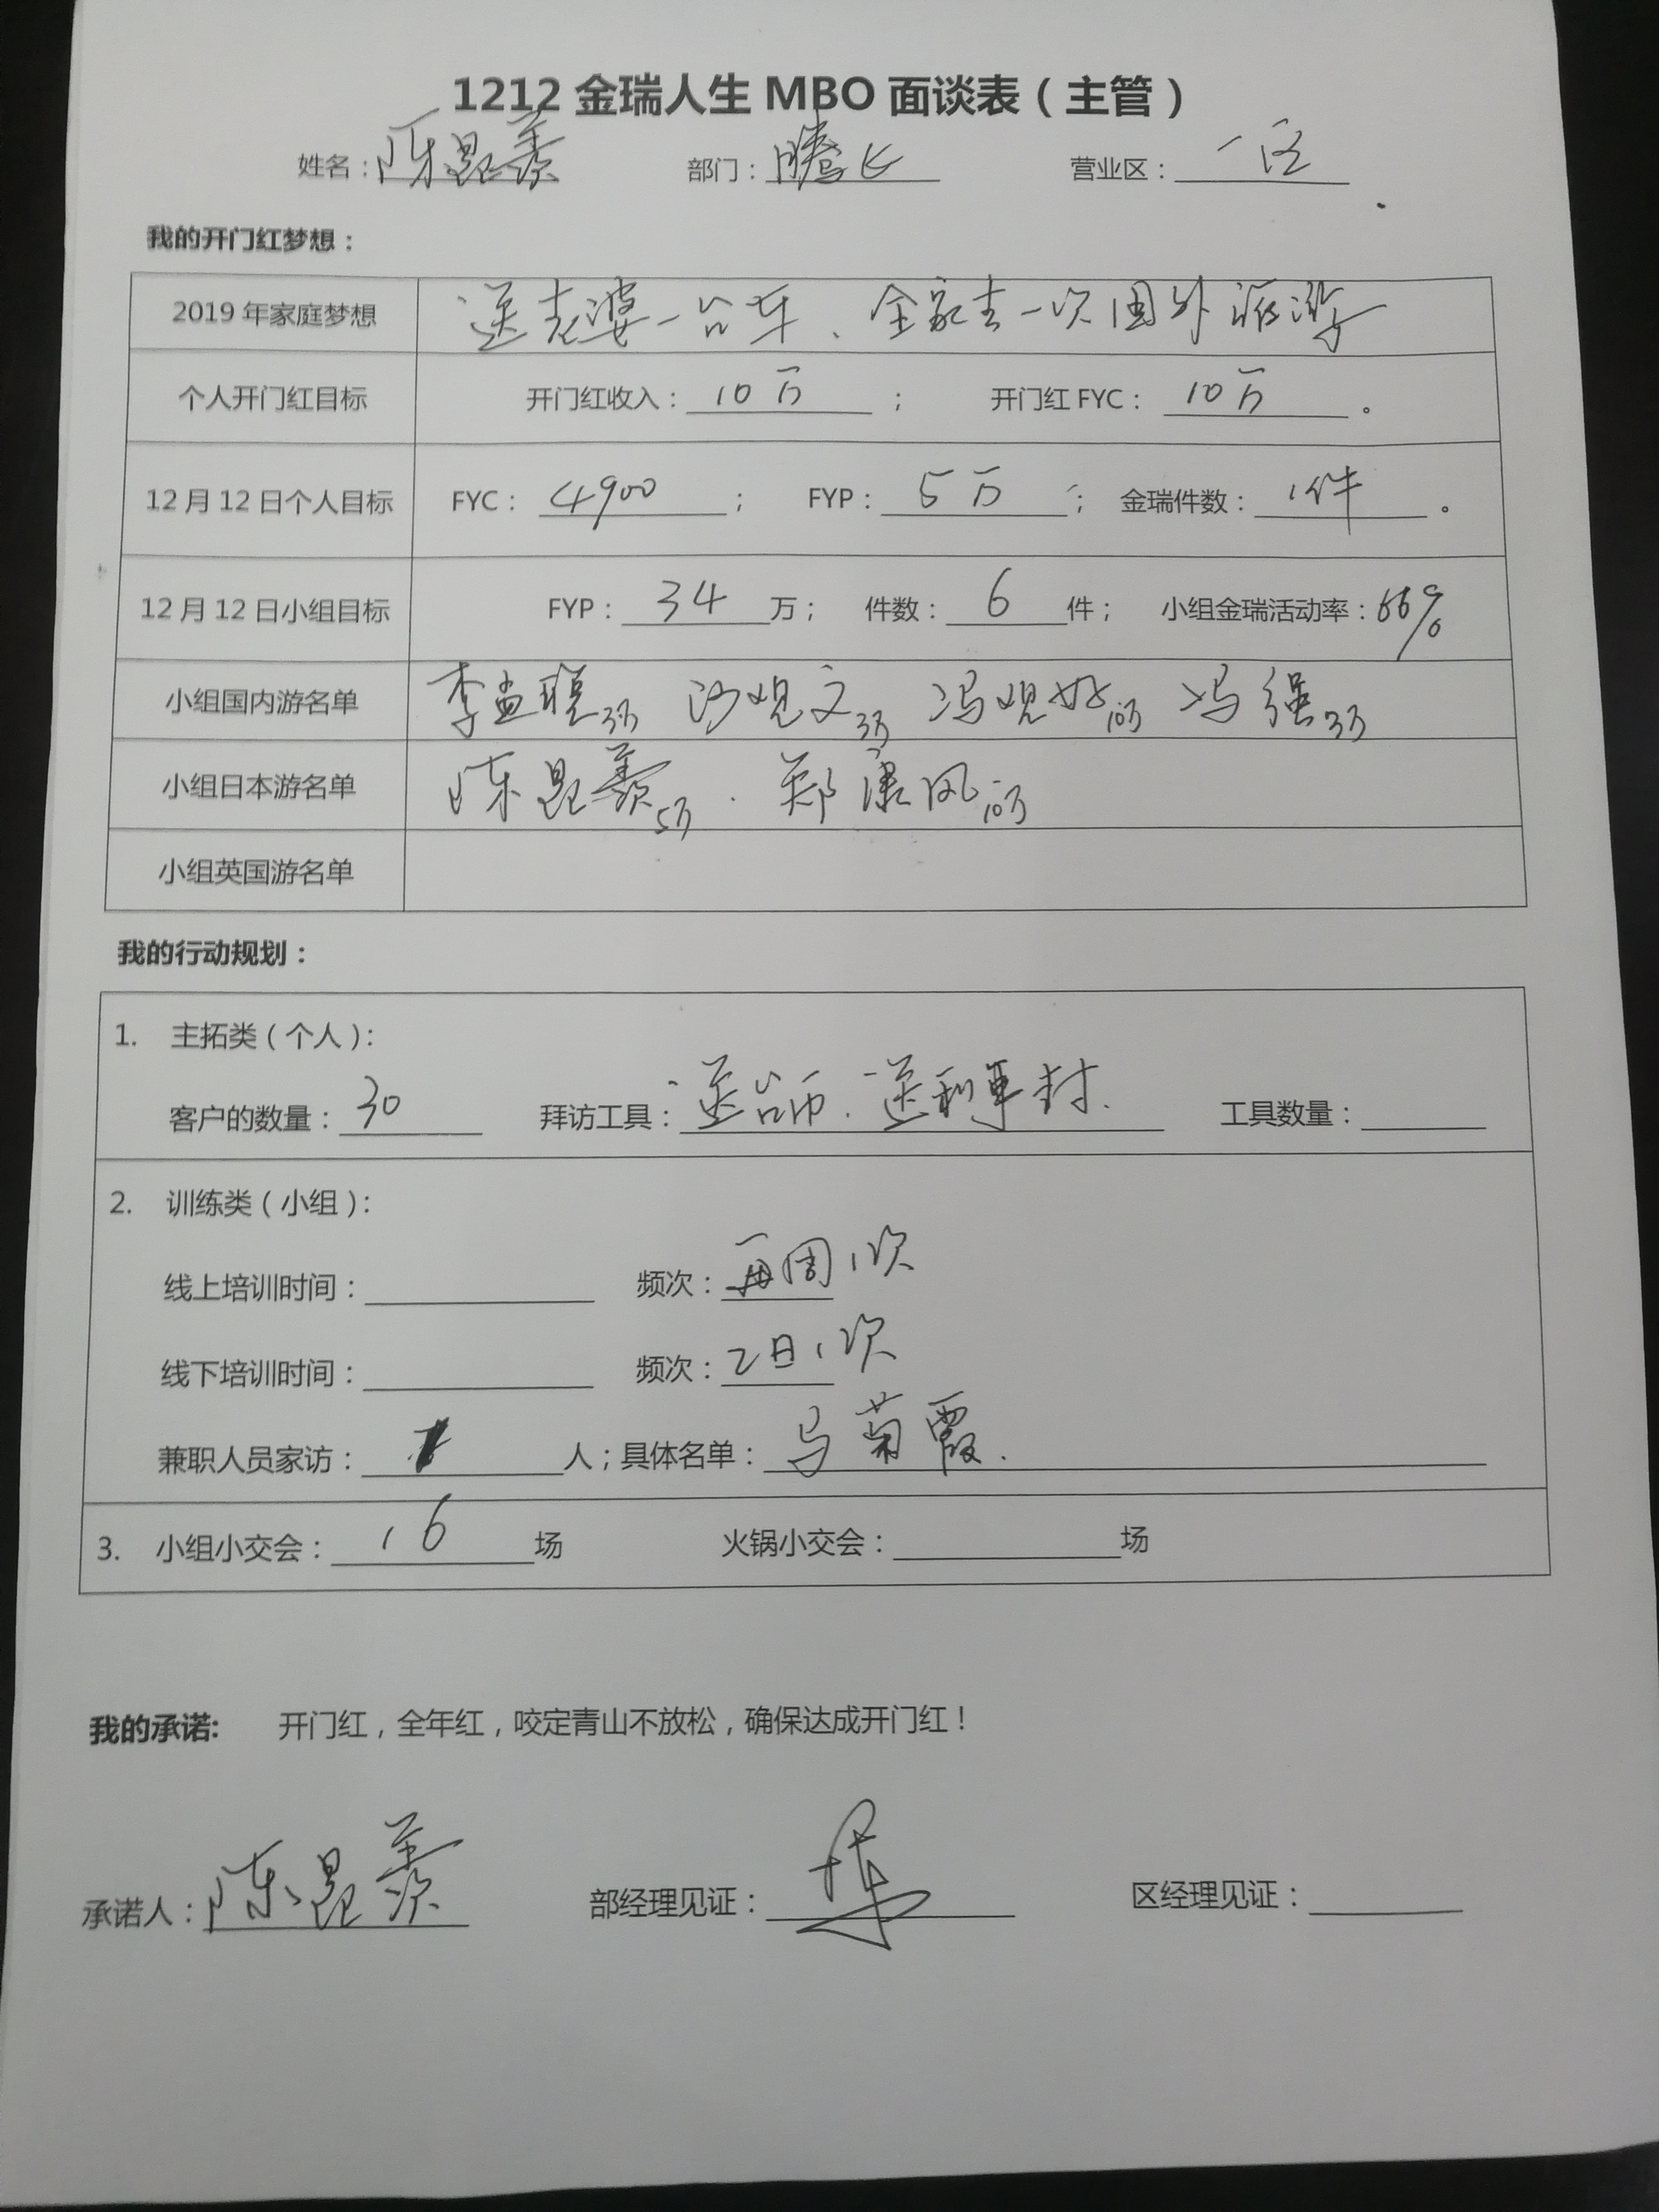 1212金瑞人生MBO面谈表（主管）
姓名：陈昆羡 部门：腾飞 营业区：一区
我的开门红梦想：
2019年家庭梦想 送老婆一台车、全家去一次国外旅游
个人开门红目标 开门红收入：10万； 开门红FYC：10万。
12月12日个人目标 FYC：4900； FYP：5万； 金瑞件数：1件。
12月12日小组目标 FYP：34万； 件数：6件； 小组金瑞活动率：66%
小组国内游名单 李孟聪3万 沙观文3万 冯观好10万 冯强3万
小组日本游名单 陈昆羡5万、郑康风10万
小组英国游名单
我的行动规划：
1. 主拓类（个人）：
客户的数量：30 拜访工具：送台币、送利事封、 工具数量：
2. 训练类（小组）：
线上培训时间： 频次：每周1次
线下培训时间： 频次：2日1次
兼职人员家访：1人；具体名单：马菊霞.
3. 小组小交会：16场 火锅小交会：场
我的承诺: 开门红，全年红，咬定青山不放松，确保达成开门红！
承诺人：陈昆羡 部经理见证： 区经理见证：